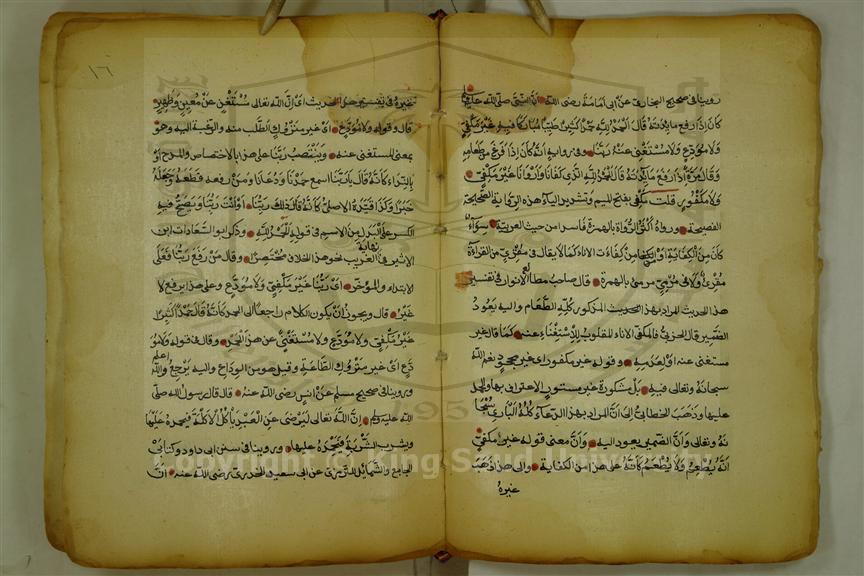 روينا في صحيح البخاري عن أبي أمامة رضي الله عنه أن النبي صلى الله عليه وسلم
كان إذا رفع مائدته قال الحمد لله حمدا كثيرا طيبا مباركا فيه غير مكفي
ولا مودع ولا مستغنى عنه ربنا وفي رواية أنه كان إذا فرغ من طعامه
وقال مرة إذا رفع مائدته قال الحمد لله الذي كفانا وأروانا غير مكفي
ولا مكفور قلت مكفي بفتح الميم وتشديد الياء هذه الرواية الصحيحة
الفصيحة ورواه أكثر الرواة بالهمزة وهو فاسد من حيث العربية سواء
كان من الكفاية أو من كفأت الإناء كما لا يقال في مقروء من القراءة
مقرئ ولا في مرمي مرمئ بالهمزة قال صاحب مطالع الأنوار في تفسير
هذا الحديث المراد بهذا الحديث المذكور كله الطعام وإليه يعود
الضمير قال الحربي فالمكفي الإناء المقلوب للاستغناء عنه كما قال غير
مستغنى عنه أو لعدمه وقوله غير مكفور أي غير مجحود نعم الله
سبحانه وتعالى فيه بل مشكورة غير مستور الاعتراف بها والحمد
عليها وذهب الخطابي إلى أن المراد بهذا الدعاء كله الباري سبحا
نه وتعالى وأن الضمير يعود إليه وأن معنى قوله غير مكفي
أنه يطعم ولا يطعم كأنه على هذا من الكفاية وإلى هذا ذهب
غيره
١٦
غيره في تفسير هذا الحديث أي إن الله تعالى مستغن عن معين وظهير
قال وقوله ولا مودع أي غير متروك الطلب منه والرغبة إليه وهو
بمعنى المستغنى عنه وينتصب ربنا على هذا بالاختصاص والمدح أو
بالنداء كأنه قال يا ربنا اسمع حمدنا ودعانا ومن رفعه قطعه وجعله
خبرا وكذا قيده الأصيلي كأنه قال ذلك ربنا أو أنت ربنا ويصح فيه
الكسر على البدل من الاسم في قوله الحمد لله وذكر أبو السعادات ابن
الأثير في نهاية الغريب نحو هذا الخلاف مختصرا وقال من رفع ربنا فعلى
الابتداء والمؤخر أي ربنا غير مكفي ولا مودع وعلى هذا يرفع
غير قال ويجوز أن يكون الكلام راجعا إلى الحمد كأنه قال حمدا كثيرا
غير مكفي ولا مودع ولا مستغنى عن هذا الحمد وقال في قوله ولا مو
دع أي غير متروك الطاعة وقيل هو من الوداع وإليه يرجع والله أعلم
وروينا في صحيح مسلم عن أنس رضي الله عنه قال قال رسول الله صلى
الله عليه وسلم إن الله تعالى ليرضى عن العبد يأكل الأكلة فيحمده عليها
ويشرب الشربة فيحمده عليها وروينا في سنن أبي داود وكتابي
الجامع والشمائل للترمذي عن أبي سعيد الخدري رضي الله عنه أن
Copyright © King Saud University